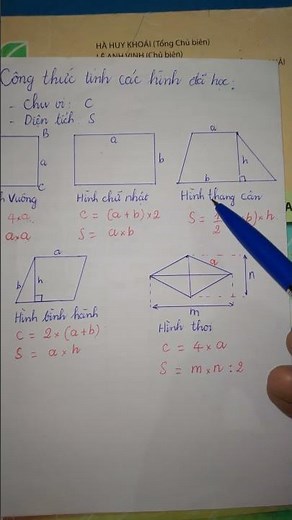 HÀ HUY KHOÁI (Tổng Chủ biên)
LÊ ANH VINH (Chủ biên)
Công thức tính các hình đã học:
- Chu vi: C
- Diện tích: S
B
a
C
Vuông
4×a
a×a
a
b
Hình chữ nhật
C = (a+b)×2
S = a×b
a
h
b
Hình thang cân
S =
2
b)×h
a
b
h
Hình bình hành
C = 2×(a+b)
S = a×h
a
n
m
Hình thoi
C = 4×a
S = m×n:2